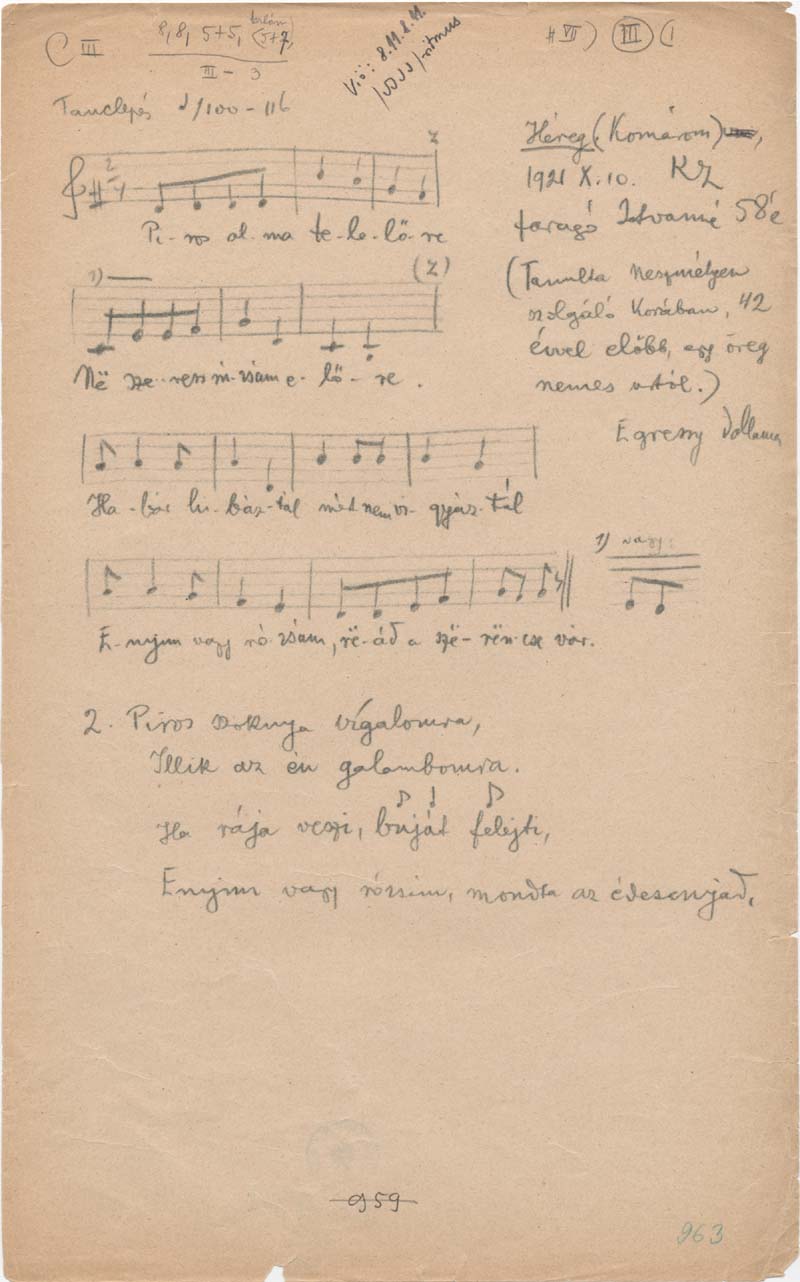 C III
8, 8, 5+5, (5+7,
III - 3
Vö: 8.11.8.11.
ritmus
VII) III (1
Tánclépés /100-116
Héreg (Komárom),
1921 X.10. KZ
faragó Istvánné 58é
(Tanulta Neszmélyen
szolgáló korában, 42
évvel előbb, egy öreg
nemes úrtól.)
Egressy dallama
2
4
Z
Pi-ros al-ma te-le-lő-re
1)
(Z)
Në sze-ress ró-zsám e-lő-re.
Ha-bár hi-báz-tál mért nem vi-gyáz-tál
1) vagy:
E-nyim vagy ró-zsám, rë-ád a szë-rën-cse vár.
2. Piros szoknya vígalomra,
Illik az én galambomra.
Ha rája veszi, búját felejti,
Enyim vagy rózsám, mondta az édesanyád,
959
963